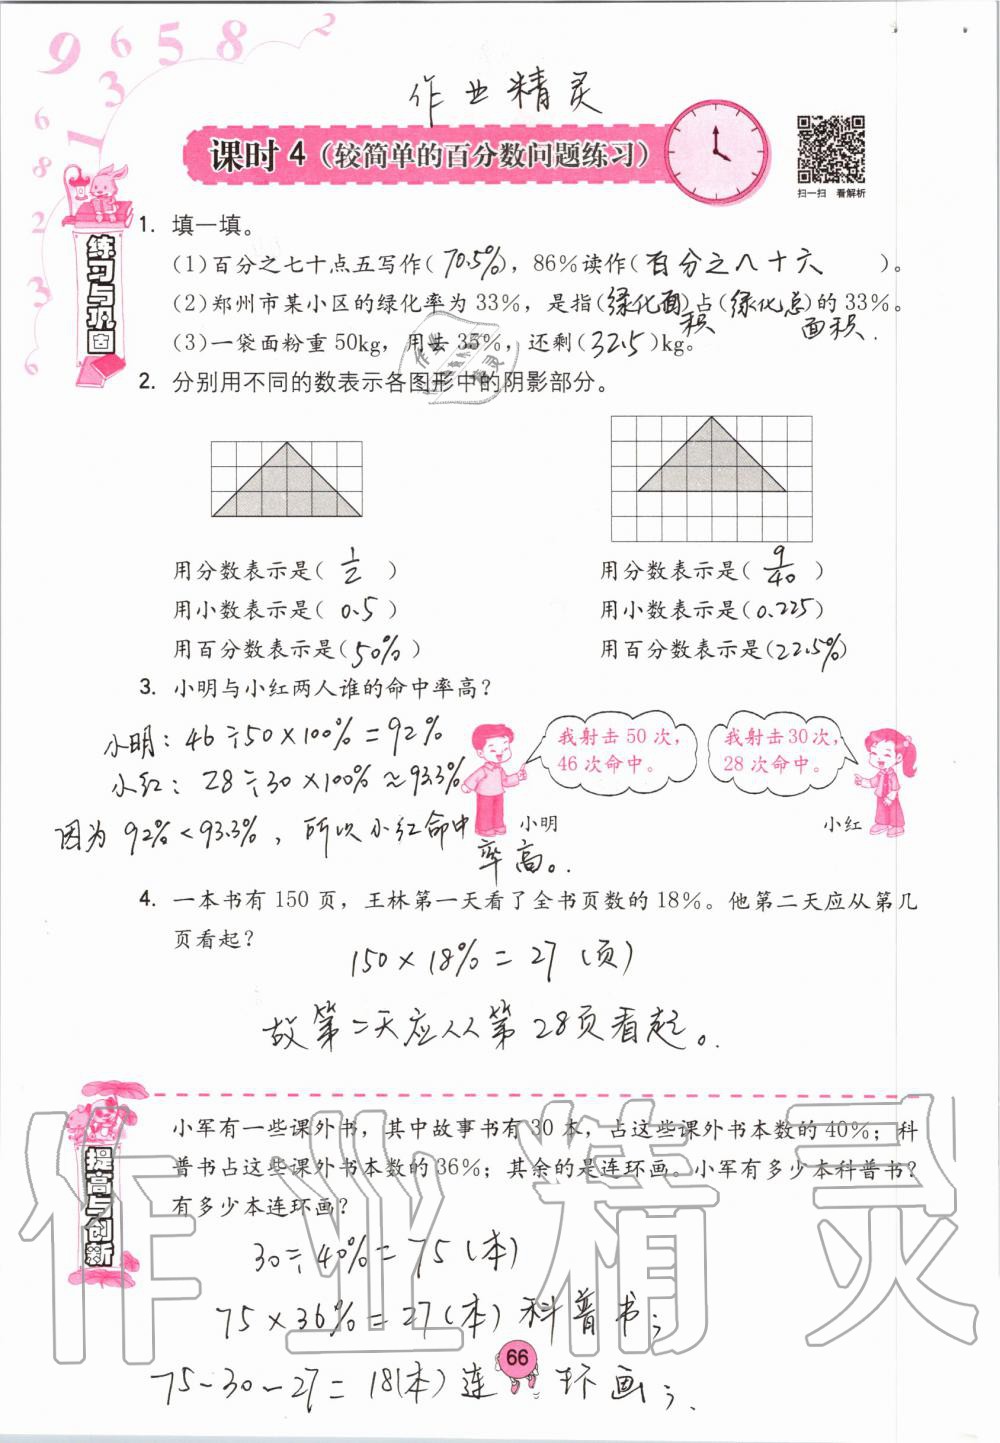 9 6 5 8 2
3
1
6
8
2
3
6
作业精灵
课时 4（较简单的百分数问题练习）
扫一扫 看解析
练习与巩固
1. 填一填。
(1)百分之七十点五写作( 70.5% )，86%读作( 百分之八十六 )。
(2)郑州市某小区的绿化率为33%，是指(绿化面积)占(绿化总面积)的33%。
(3)一袋面粉重50kg，用去35%，还剩( 32.5 )kg。
2. 分别用不同的数表示各图形中的阴影部分。
用分数表示是( 1/2 ) 用分数表示是( 9/40 )
用小数表示是( 0.5 ) 用小数表示是( 0.225 )
用百分数表示是( 50% ) 用百分数表示是( 22.5% )
3. 小明与小红两人谁的命中率高？
小明：46÷50×100%=92%
我射击50次，
46次命中。
我射击30次，
28次命中。
小红：28÷30×100%≈93.3%
小明 小红
因为 92%<93.3%，所以小红命中
率高。
4. 一本书有150页，王林第一天看了全书页数的18%。他第二天应从第几
页看起？
150×18%=27(页)
故第二天应从第28页看起。
提高与创新
小军有一些课外书，其中故事书有30本，占这些课外书本数的40%；科
普书占这些课外书本数的36%；其余的是连环画。小军有多少本科普书？
有多少本连环画？
30÷40%=75(本)
75×36%=27(本)科普书；
75-30-27=18(本)连环画；
66
作业精灵